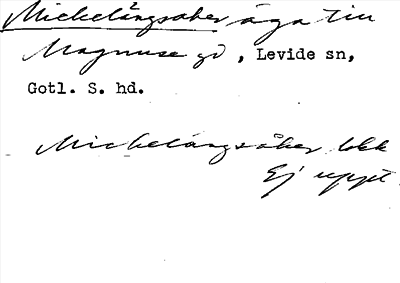 Mickelängsåker äga till
Magnuse gd, Levide sn,
Gotl. S. hd.
Mickelängsåker bkk
Ej uppt.